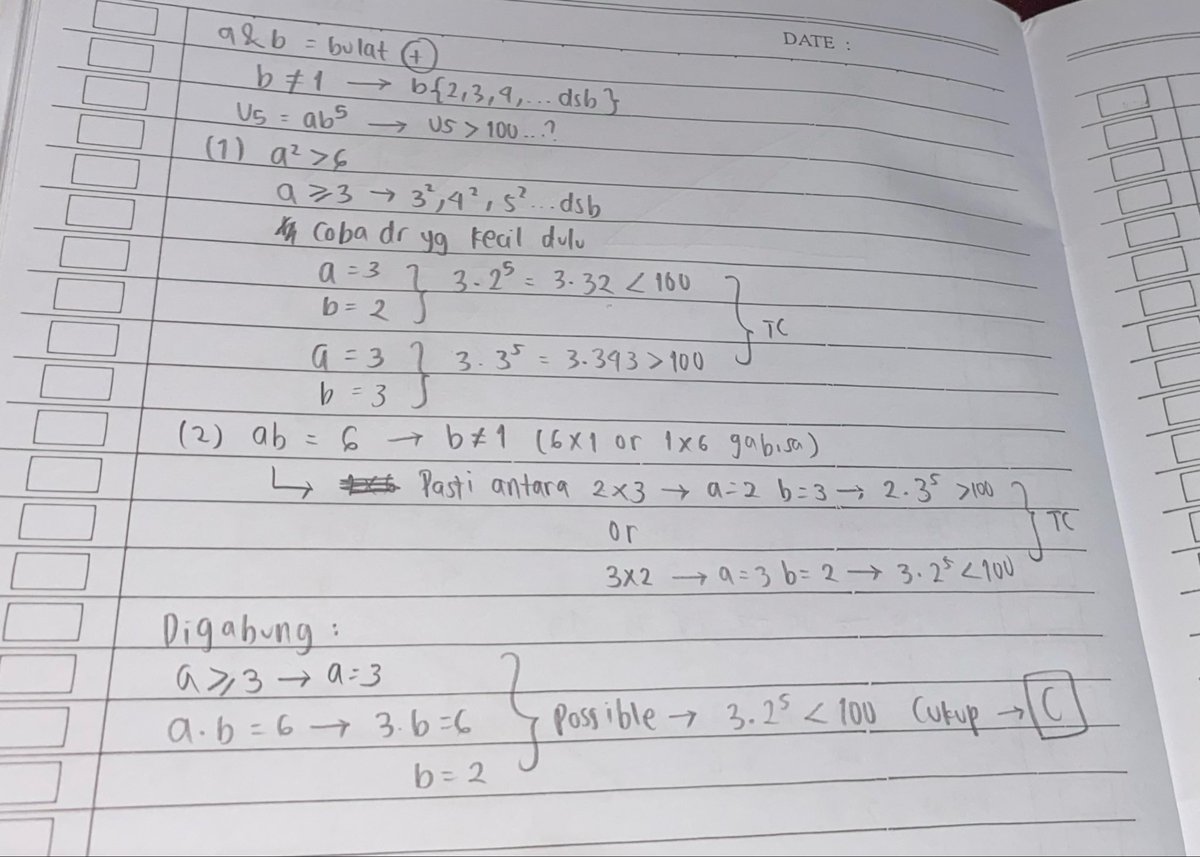 DATE :
a & b = bulat (+)
b ≠ 1 → b{2,3,4,... dsb}
U5 = ab⁵ → U5 > 100...?
(1) a² > 6
a ≥ 3 → 3², 4², 5² ... dsb
coba dr yg kecil dulu
a = 3 } 3 . 2⁵ = 3 . 32 < 100
b = 2
} TC
a = 3 } 3 . 3⁵ = 3 . 343 > 100
b = 3
(2) ab = 6 → b ≠ 1 (6x1 or 1x6 gabisa)
↳ Pasti antara 2x3 → a=2 b=3 → 2 . 3⁵ > 100
or } TC
3x2 → a=3 b=2 → 3 . 2⁵ < 100
Digabung :
a ≥ 3 → a = 3
a . b = 6 → 3 . b = 6 } possible → 3 . 2⁵ < 100 Cukup → C
b = 2